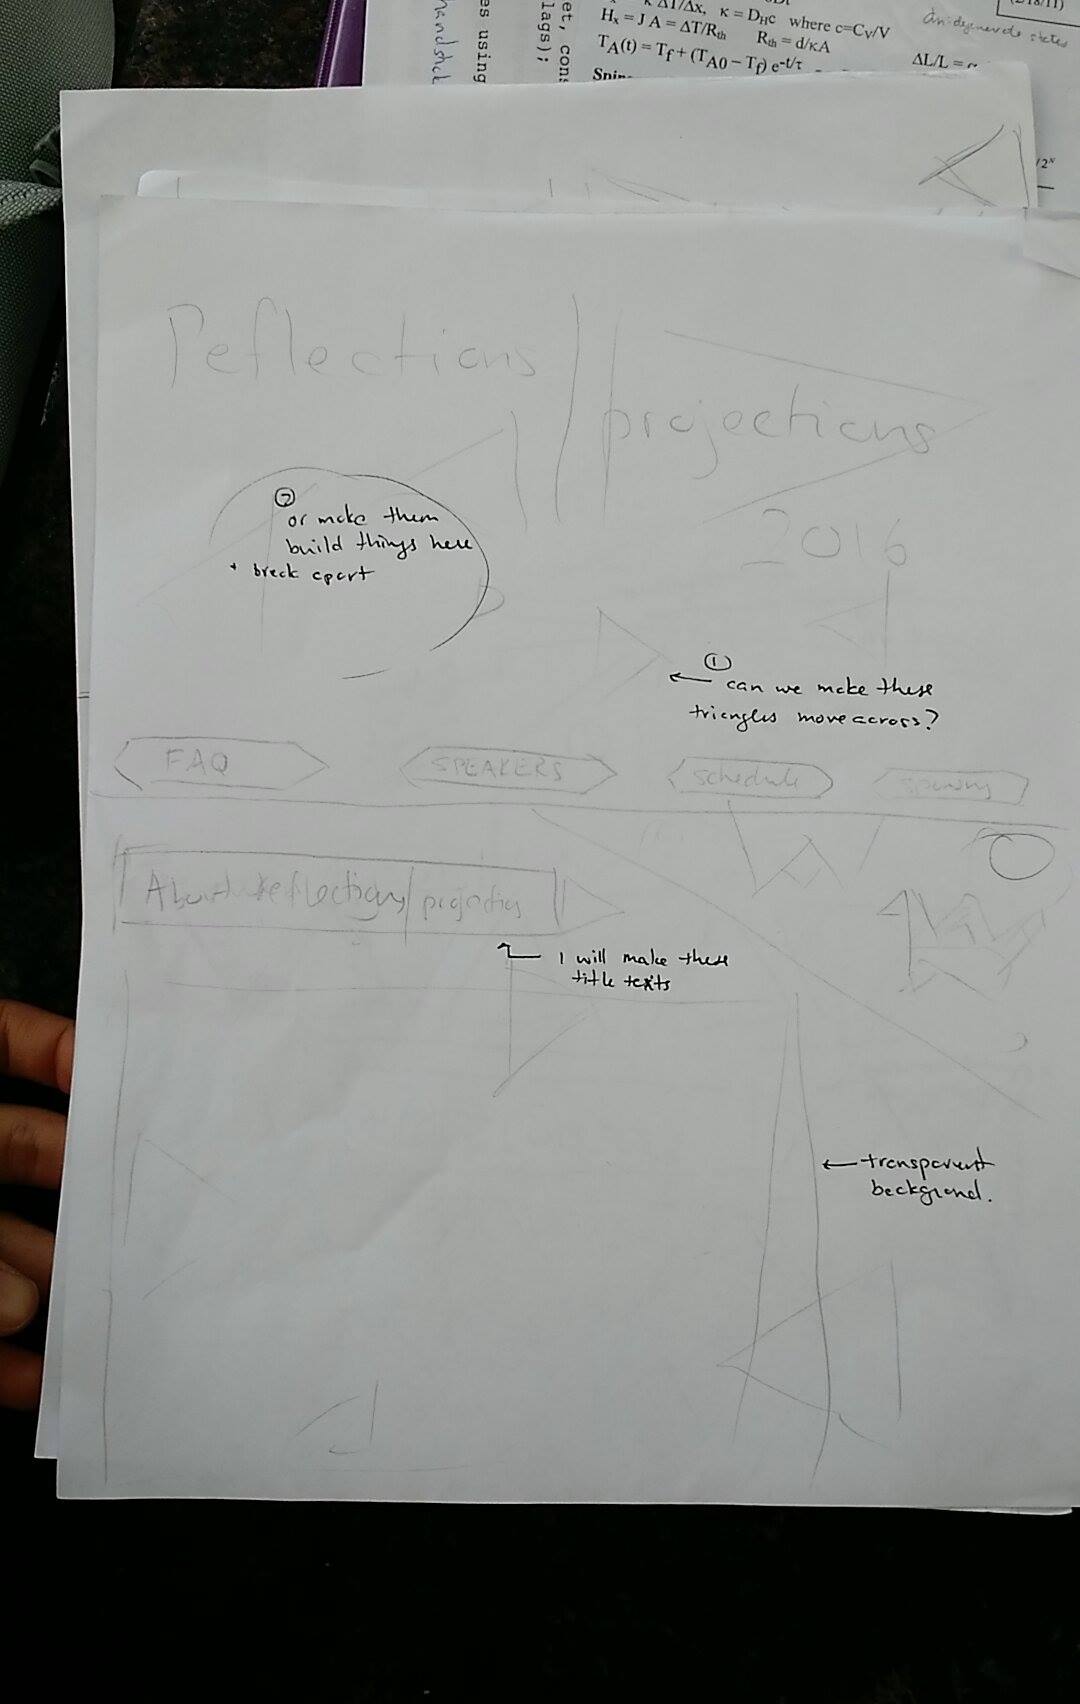 κ = D_H c where c=C_V/V
H_x = J A = ΔT/R_th R_th = d/κA
T_A(t) = T_f + (T_A0 – T_f) e^-t/τ
ΔL/L =
et, cons
lags);
es using
handstick
/2^N
Reflections
projections
2016
② or make them
build things here
+ break apart
① can we make these
triangles move across?
FAQ
SPEAKERS
schedule
About reflections/projections
I will make these
title texts
transparent
background.